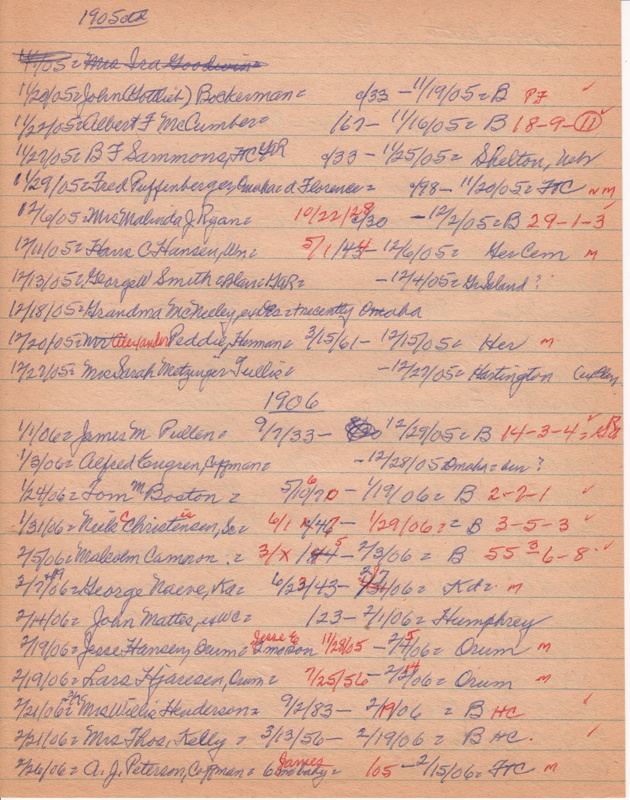 1905 ctd
11/05 = Mrs Ira Goodwin =
11/20/05 = John (Gottlieb) Bockerman = c/33 - 11/19/05 = B PF ✓
11/22/05 = Albert F McCumber = /67 - 11/16/05 = B 18-9-11
11/27/05 = B F Sammons, FC c/33 - 11/25/05 = Shelton, Nebr
11/29/05 = Fred Puffenberger, Omaha d Florence = c/98 - 11/20/05 = FTC m
12/6/05 = Mrs Malinda J. Ryan = 10/22/28 c/30 - 12/2/05 = B 29-1-3 ✓
12/11/05 = Hans C Hansen, = 5/1/43 4 - 12/6/05 = Her Cem m
12/13/05 = George W Smith = Blair GAR = - 12/4/05 = Gr Island ?
12/18/05 = Grandma McNeeley, = recently Omaha
12/20/05 = Mr Alexander Peddie, Herman = 3/15/61 - 12/15/05 = Her m
12/27/05 = Mrs Sarah Metzinger Tullis = - 12/27/05 = Hartington
1906
1/1/06 = James M Pullen = 9/7/33 - 12/29/05 = B 14-3-4 = ✓
1/3/06 = Alfred Eugren, Coffman = - 12/28/05 Omaha = ?
1/24/06 = Tom M Boston = 5/10/70 6 - 1/19/06 = B 2-2-1 ✓
1/31/06 = Neils C Christensen, Sr = 6/1 /47 - 1/29/06 = = B 3-5-3 ✓
2/5/06 = Malcolm Cameron = 3/x /44 5 - 2/3/06 = B 55 3 6-8 ✓
2/7/06 = George Naeve, Ka = 6/23/43 - 2/7 /06 = Kd = m
2/14/06 = John Mattes, = /23 - 2/1/06 = Humphrey
2/19/06 = Jesse Hansen, Orum = Jesse E 11/28/05 - 2/ 5/06 = Orum m
2/19/06 = Lars Hjaresen, Orum = 7/25/56 - 2/ 14/06 = Orum m
2/21/06 = Mrs Willis Henderson = 9/2/83 - 2/19/06 = B HC ✓
2/21/06 = Mrs Thos. Kelly = 3/13/56 - 2/19/06 = B HC. ✓
2/26/06 = A. J. Peterson, Coffman = 6 mo baby = James /05 - 2/15/06 = FTC m